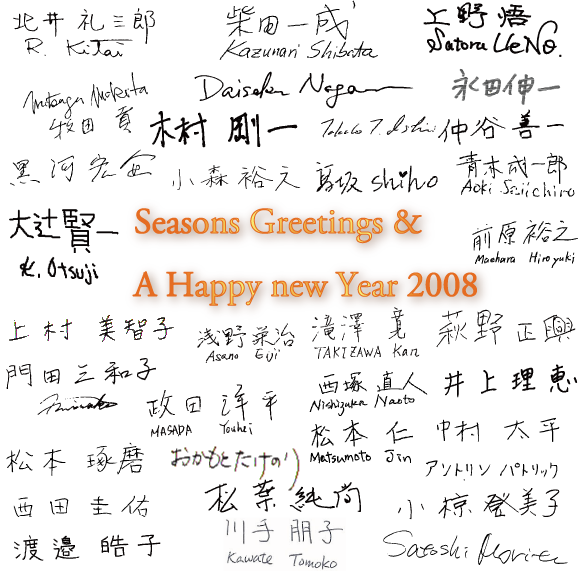 北井 礼三郎
R. Kitai
柴田一成
Kazunari Shibata
上野 悟
Satoru UeNo.
牧田 貢
Daisaku Nagan
永田伸一
木村 剛一
仲谷 善一
黒河宏企
小森裕之
高坂 shiho
青木成一郎
Aoki Seiichiro
大辻賢一
K. Otsuji
Seasons Greetings &
A Happy new Year 2008
前原裕之
Maehara Hiroyuki
上村 美智子
浅野栄治
Asano Eiji
滝澤 寛
TAKIZAWA Kan
萩野正興
門田三和子
政田洋平
MASADA Youhei
西塚直人
Nishizuka Naoto
井上理恵
松本 琢磨
おかもとたけのり
松本 仁
Matsumoto Jin
中村 太平
アントリン パトリック
西田 圭佑
松葉純尚
小椋登美子
渡邉 皓子
川手 朋子
Kawate Tomoko
Satoshi Morita